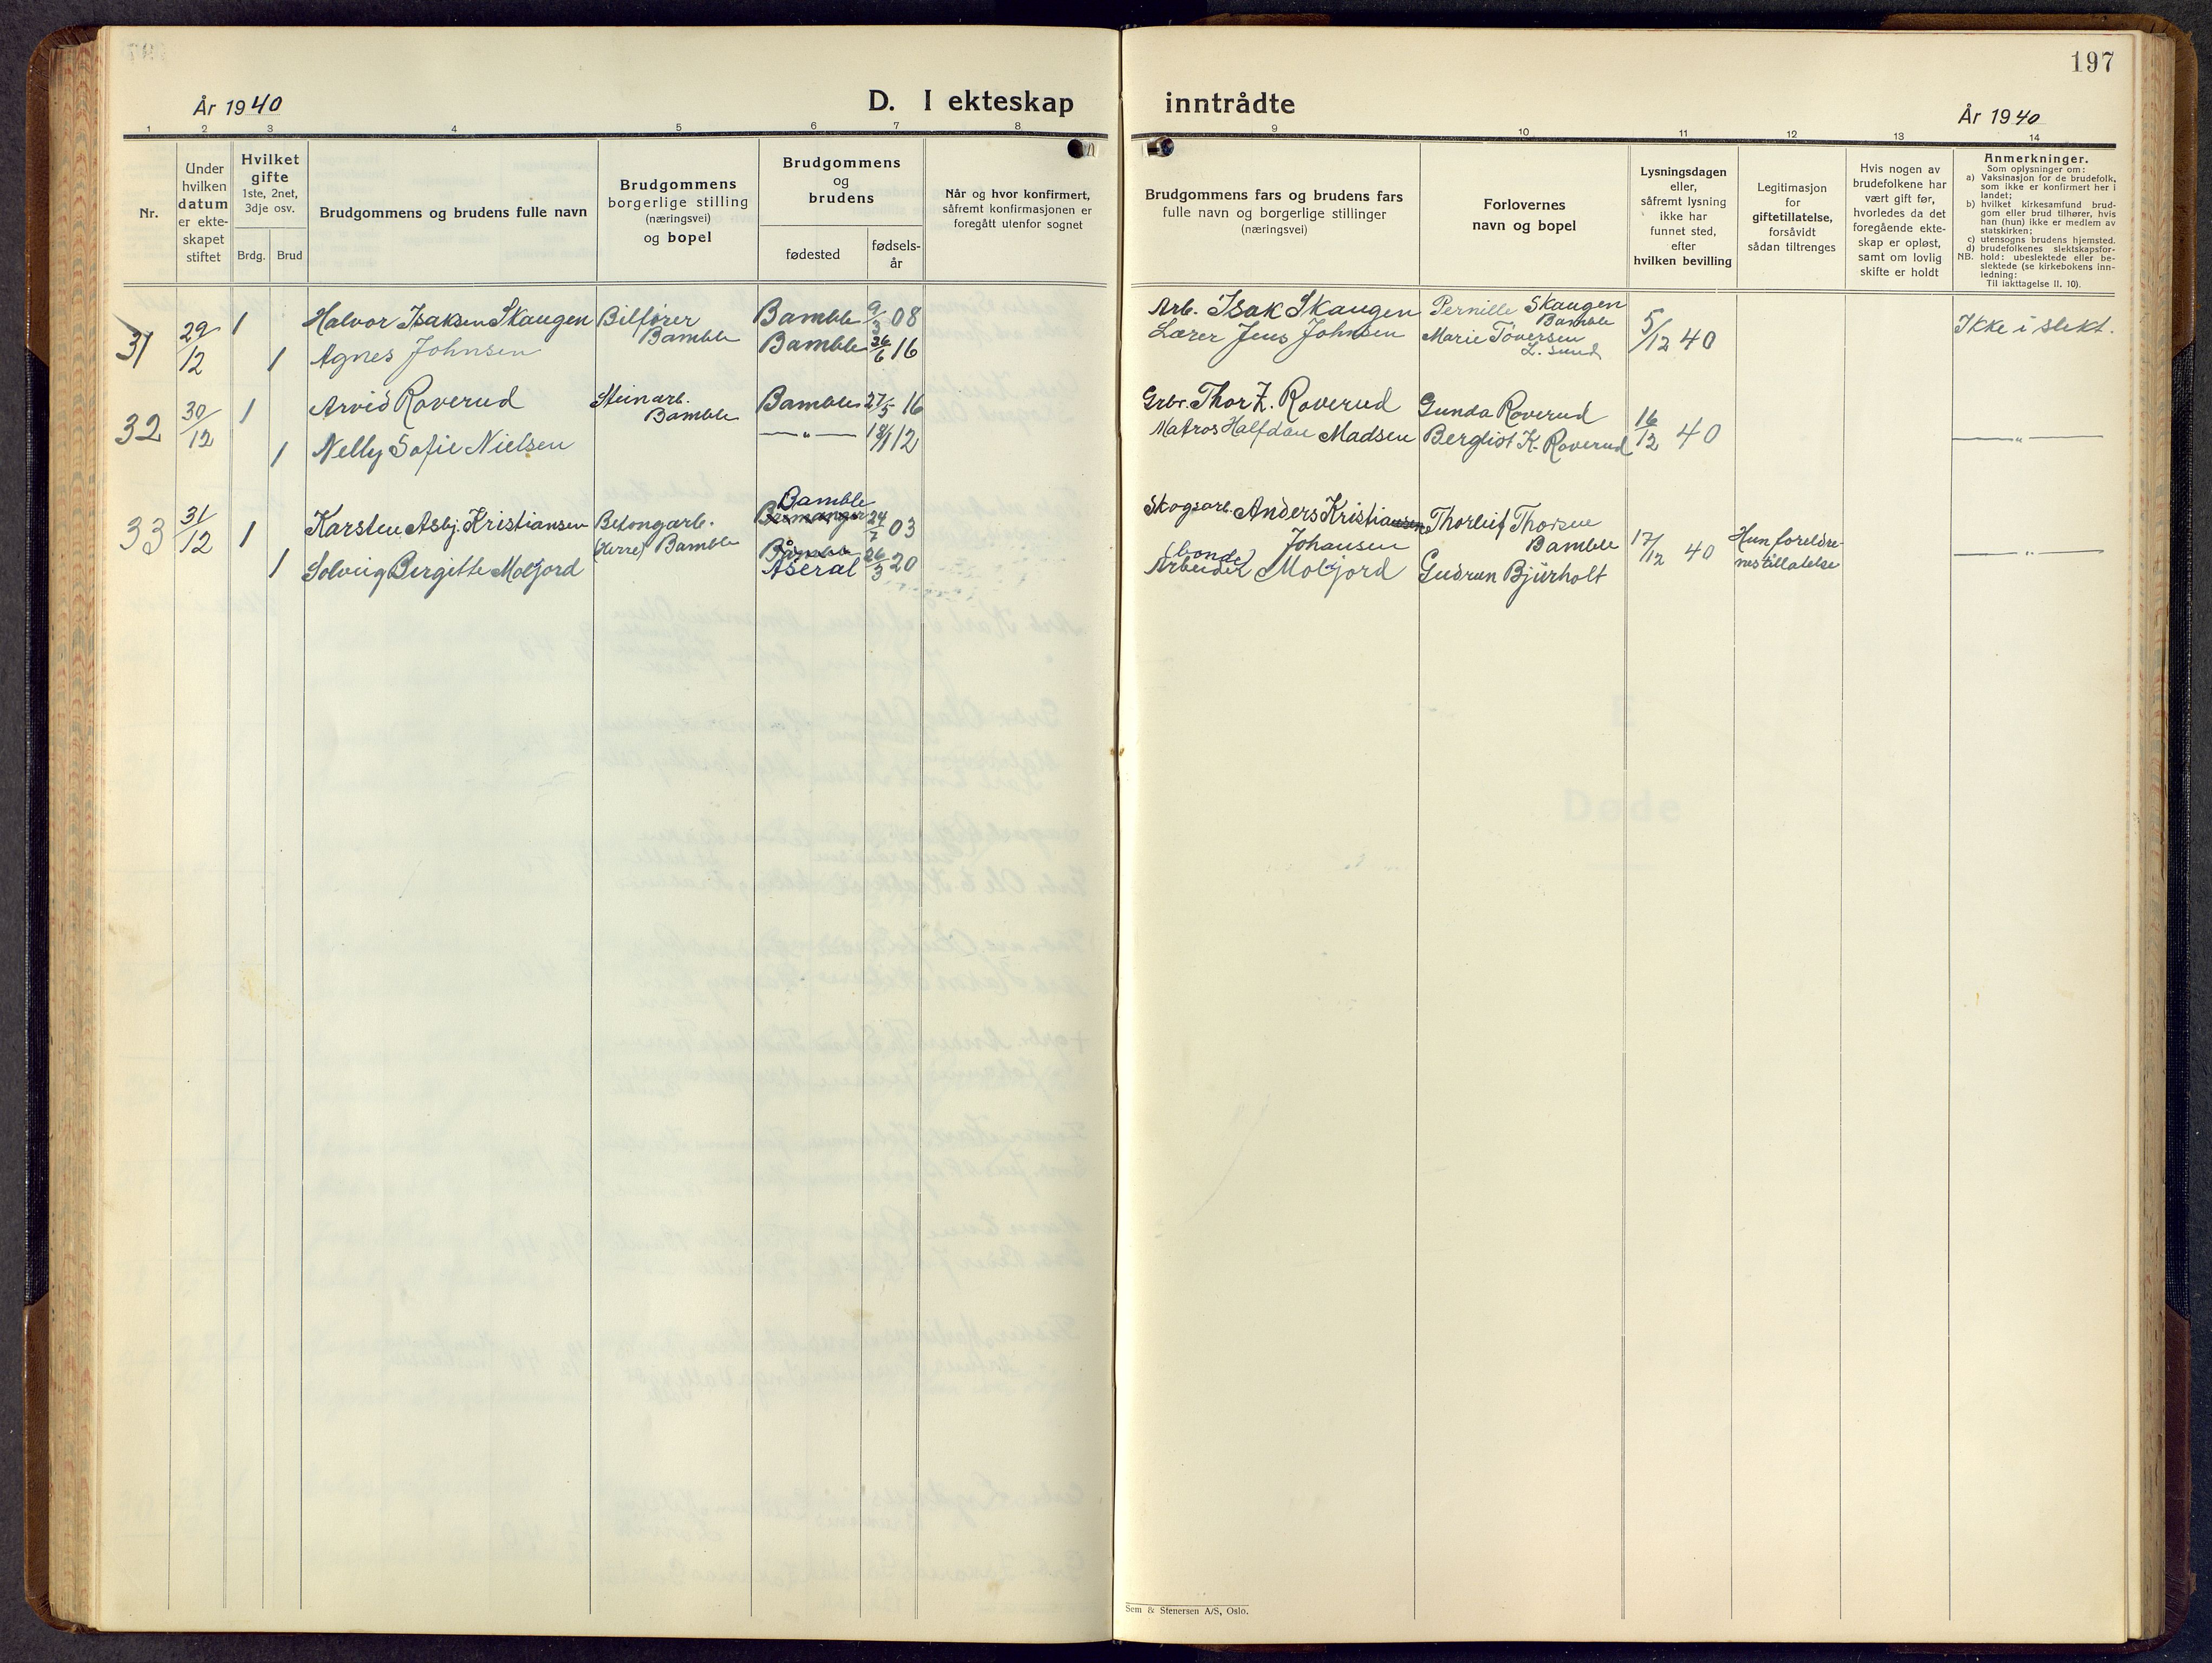 197
År 1940
D. I ekteskap inntrådte
År 1940
1 2 3 4 5 6 7 8 9 10 11 12 13 14
Nr.
Under
hvilken
datum
er ekte-
skapet
stiftet
Hvilket
gifte
1ste, 2net,
3dje osv.
Brdg. Brud
Brudgommens og brudens fulle navn
Brudgommens
borgerlige stilling
(næringsvei)
og bopel
Brudgommens
og
brudens
fødested
fødsels-
år
Når og hvor konfirmert,
såfremt konfirmasjonen er
foregått utenfor sognet
Brudgommens fars og brudens fars
fulle navn og borgerlige stillinger
(næringsvei)
Forlovernes
navn og bopel
Lysningsdagen
eller,
såfremt lysning
ikke har
funnet sted,
efter
hvilken bevilling
Legitimasjon
for
giftetillatelse,
forsåvidt
sådan tiltrenges
Hvis nogen av
brudefolkene har
vært gift før,
hvorledes da det
foregående ekte-
skap er opløst,
samt om lovlig
skifte er holdt
Anmerkninger.
Som oplysninger om:
a) Vaksinasjon for de brudefolk,
som ikke er konfirmert her i
landet;
b) hvilket kirkesamfund brud-
gom eller brud tilhører, hvis
han (hun) ikke er medlem av
statskirken;
c) utensogns brudens hjemsted.
d) brudefolkenes slektskapsfor-
NB. hold: ubeslektede eller be-
slektede (se kirkebokens inn-
ledning:
Til iakttagelse II. 10).
31 29/12 1 Halvor Isaksen Skaugen Bilfører Bamble Bamble 9/3 08 Arb. Isak Skaugen Pernille Skaugen Bamble 5/12 40 Ikke i slekt.
1 Agnes Johnsen Bamble 6 16 Lærer Jens Johnsen Marie Toversen L. sund
32 30/12 1 Arvid Roverud Steinarb. Bamble Bamble 27/5 16 Grbr. Thor Z. Roverud Gunda Roverud 16/12 40 —„—
1 Nelly Sofie Nielsen —„— 12 Matros Halfdan Madsen Bergliot K. Roverud
33 31/12 1 Karsten Asbj. Kristiansen Betongarb. (Herre) Bamble Bamble 24/7 03 Skogsarb. Anders Kristiansen Johansen Thorleif Thorsen Bamble 17/12 40 Hun foreldre-
nes tillatelse —„—
1 Solveig Bergitte Moljord Åseral 26/3 20 (bonde) Arbeider Moljord Gudrun Bjurholt
Døde
Sem & Stenersen A/S, Oslo.